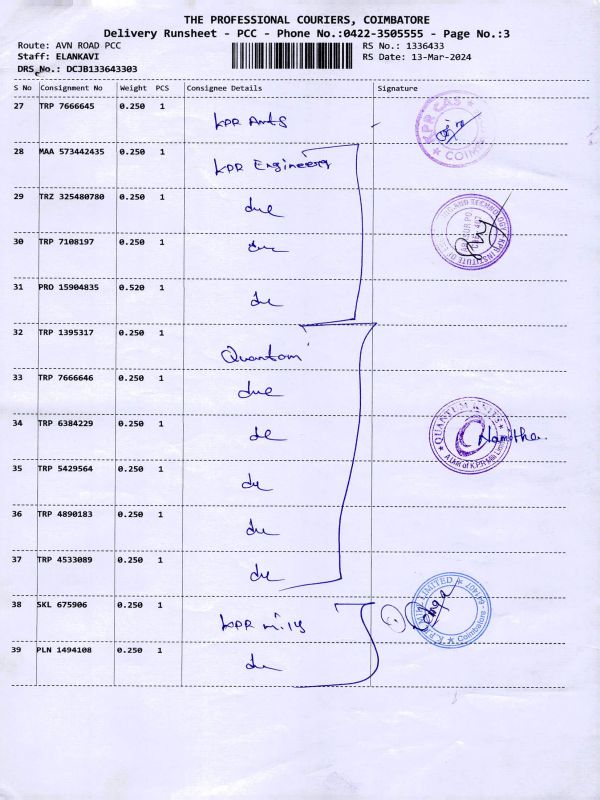 THE PROFESSIONAL COURIERS, COIMBATORE
Delivery Runsheet - PCC - Phone No.:0422-3505555 - Page No.:3
Route: AVN ROAD PCC RS No.: 1336433
Staff: ELANKAVI RS Date: 13-Mar-2024
DRS No.: DCJB133643303
S No Consignment No Weight PCS Consignee Details Signature
27 TRP 7666645 0.250 1
KPR Arts
KPR CAS
COIMB
28 MAA 573442435 0.250 1
KPR Engineering
29 TRZ 325480780 0.250 1
due
AND TECHNOLOGY KPR INSTITUTE OF
30 TRP 7108197 0.250 1
due
31 PRO 15904835 0.520 1
du
32 TRP 1395317 0.250 1
Quantom
33 TRP 7666646 0.250 1
due
34 TRP 6384229 0.250 1
de
QUANTUM KNITS
A Unit of K.P.R. Mill Limited
Namitha.
35 TRP 5429564 0.250 1
du
36 TRP 4890183 0.250 1
du
37 TRP 4533089 0.250 1
du
38 SKL 675906 0.250 1
KPR mill
K.P.R. MILL LIMITED
Coimbatore - 641407
39 PLN 1494108 0.250 1
du